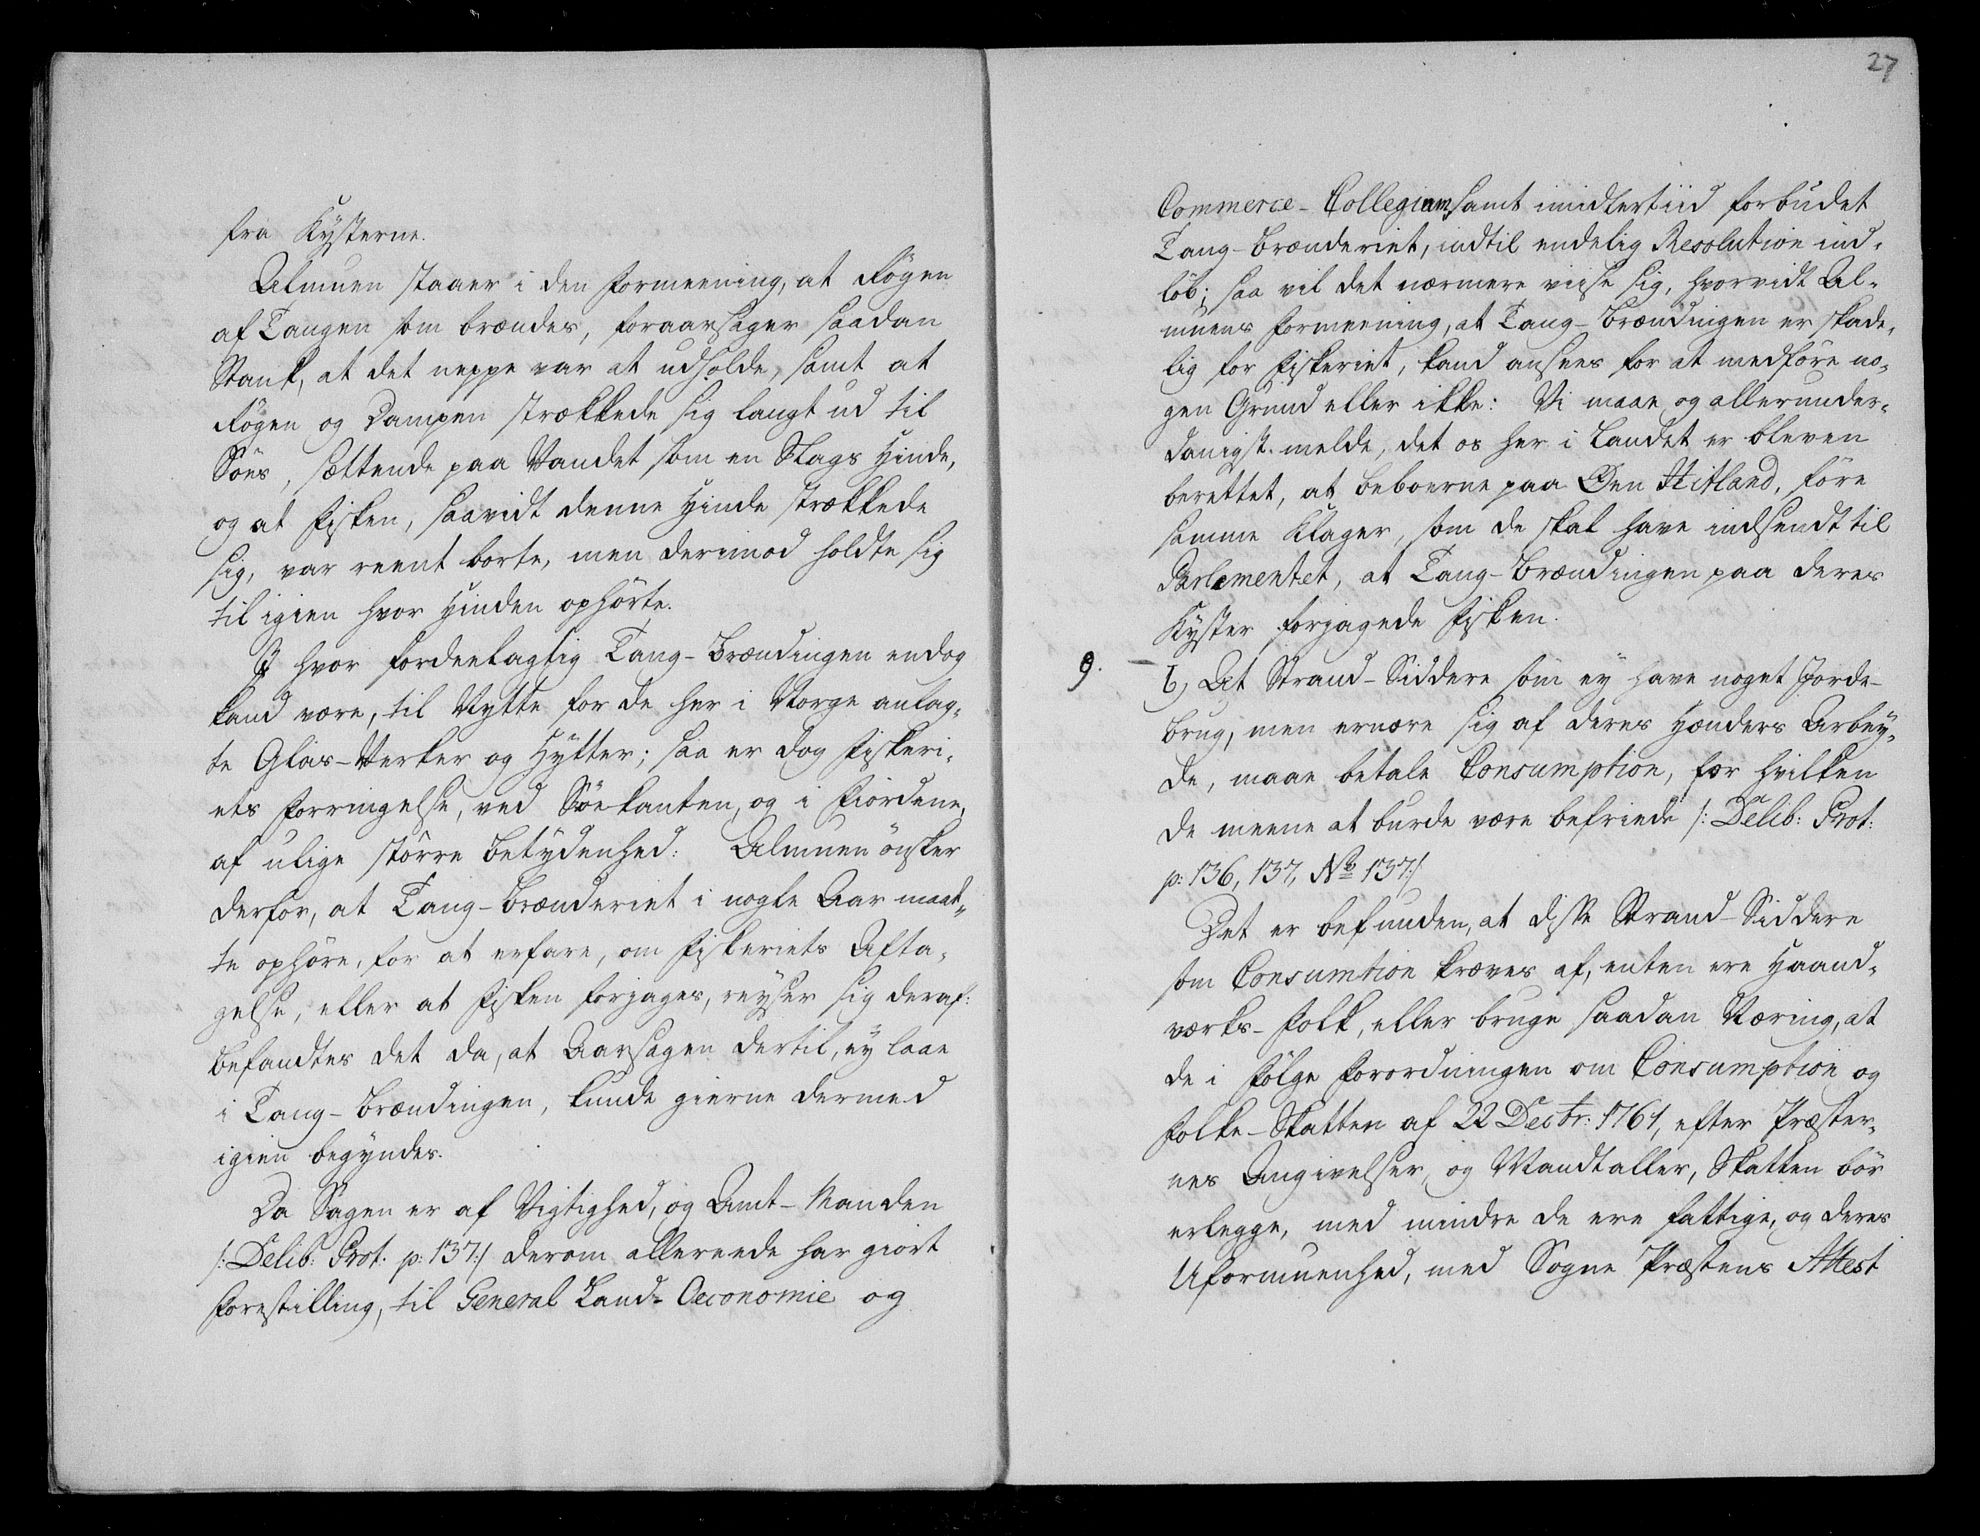 fra Kysterne.
Almuen staaer i den Formeening, at Røgen
af Tangen som brændes, foraarsager saadan
Stank, at det neppe var at udholde, samt at
Røgen og Dampen strækkede sig langt ud til
Søes, sættende paa Vandet som en Slags Hinde,
og at Fisken, saavidt denne Hinde strækkede
sig, var reent borte, men derimod holdte sig
til igien hvor Hinden ophørte.
I hvor fordeelagtig Tang-Brændingen endog
kand være, til Nytte for de her i Norge anlag-
te Glas-Verker og Hytter; saa er dog Fiskeri-
ets Forringelse, ved Søekanten, og i Fiordene,
af ulige større Betydenhed: Almuen ønsker
derfor, at Tang-Brænderiet i nogle Aar maat-
te ophøre, for at erfare, om Fiskeriets Afta-
gelse, eller at Fisken forjages, reyser sig deraf:
befandtes det da, at Aarsagen dertil, ey laae
i Tang-Brændingen, kunde gierne dermed
igien begyndes.
Da Sagen er af Vigtighed, og Amt-Manden
/: Delib: Prot. p: 137:/ derom allereede har giort
Forestilling, til General Land-Oeconomie og
27
Commerce-Collegium, samt imidlertiid forbudet
Tang-Brænderiet, indtil endelig Resolution ind-
løb; saa vil det nærmere viise sig, hvorvidt Al-
muens Formeening, at Tang-Brændingen er skade-
lig for Fiskeriet, kand ansees for at medføre no-
gen Grund eller ikke: Vi maae og allerunder-
danigst melde, det os her i Landet er bleven
berettet, at Beboerne paa Øen Hitland, føre
samme Klager, som de skal have indsendt til
Parlementet, at Tang-Brændingen paa deres
Kyster forjagede Fisken.
9. b, At Strand-Siddere som ey have noget Jorde-
brug, men ernære sig af deres Hænders Arbey-
de, maae betale Consumption, for hvilken
de meene at burde være befriede /: Delib: Prot:
p: 136, 137, No 137:/
Det er befunden, at disse Strand-Siddere
som Consumtion kræves af, enten ere Haand-
værks-Folk, eller bruge saadan Næring, at
de i Følge Forordningen om Consumption og
Folke-Skatten af 22 Decbr: 1761, efter Præster-
nes Angivelser, og Mandtaller, Skatten bør
erlegge, med mindre de ere fattige, og deres
Uformuenhed, med Sogne Præstens Attest